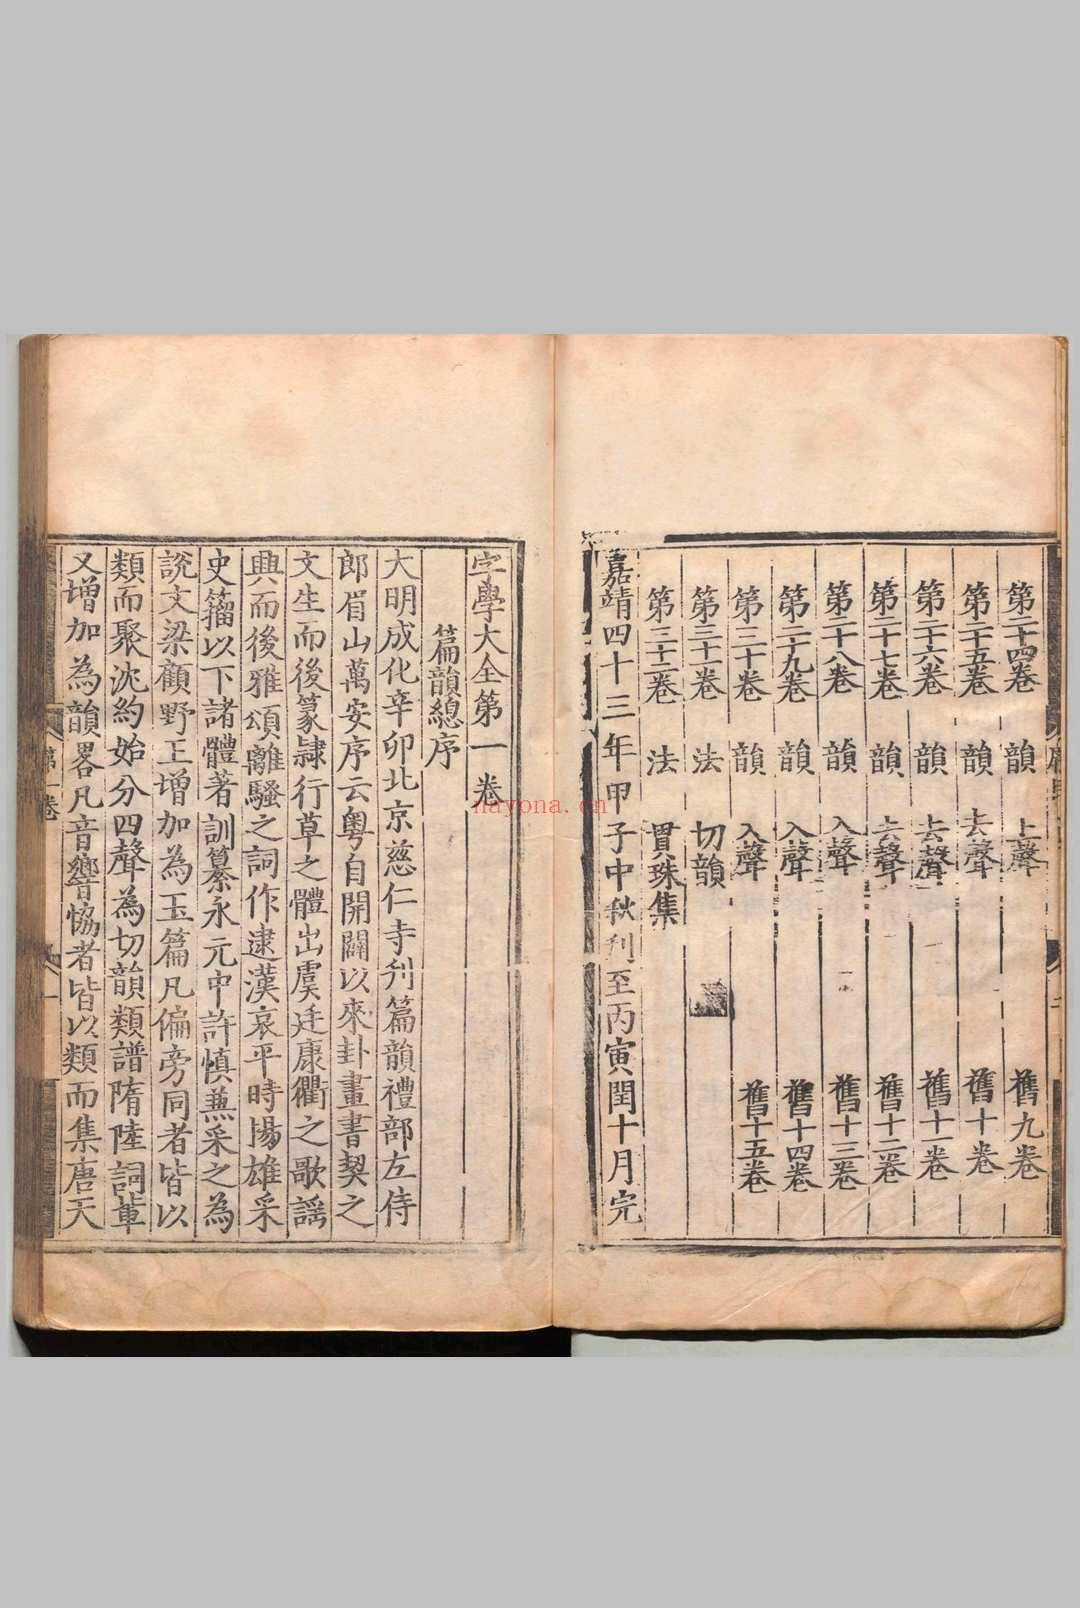 第二十四卷　韻　上聲　舊九卷
第二十五卷　韻　去聲　舊十卷
第二十六卷　韻　去聲　舊十一卷
第二十七卷　韻　去聲　舊十二卷
第二十八卷　韻　入聲　舊十三卷
第二十九卷　韻　入聲　舊十四卷
第三十卷　韻　入聲　舊十五卷
第三十一卷　法　切韻
第三十二卷　法　貫珠集
嘉靖四十三年甲子中秋刋至丙寅閏十月完
字學大全第一卷
篇韻總序
大明成化辛卯北京慈仁寺刋篇韻禮部左侍
郎眉山萬安序云粵自開闢以來卦畫書契之
文生而後篆隷行草之體出虞廷康衢之歌謡
興而後雅頌離騷之詞作逮漢哀平時揚雄采
史籀以下諸體著訓纂永元中許慎兼采之為
說文梁顧野王增加為玉篇凡偏旁同者皆以
類而聚沈約始分四聲為切韻類譜隋陸詞軰
又增加為韻畧凡音響恊者皆以類而集唐天
第一卷
一
nayona.cn